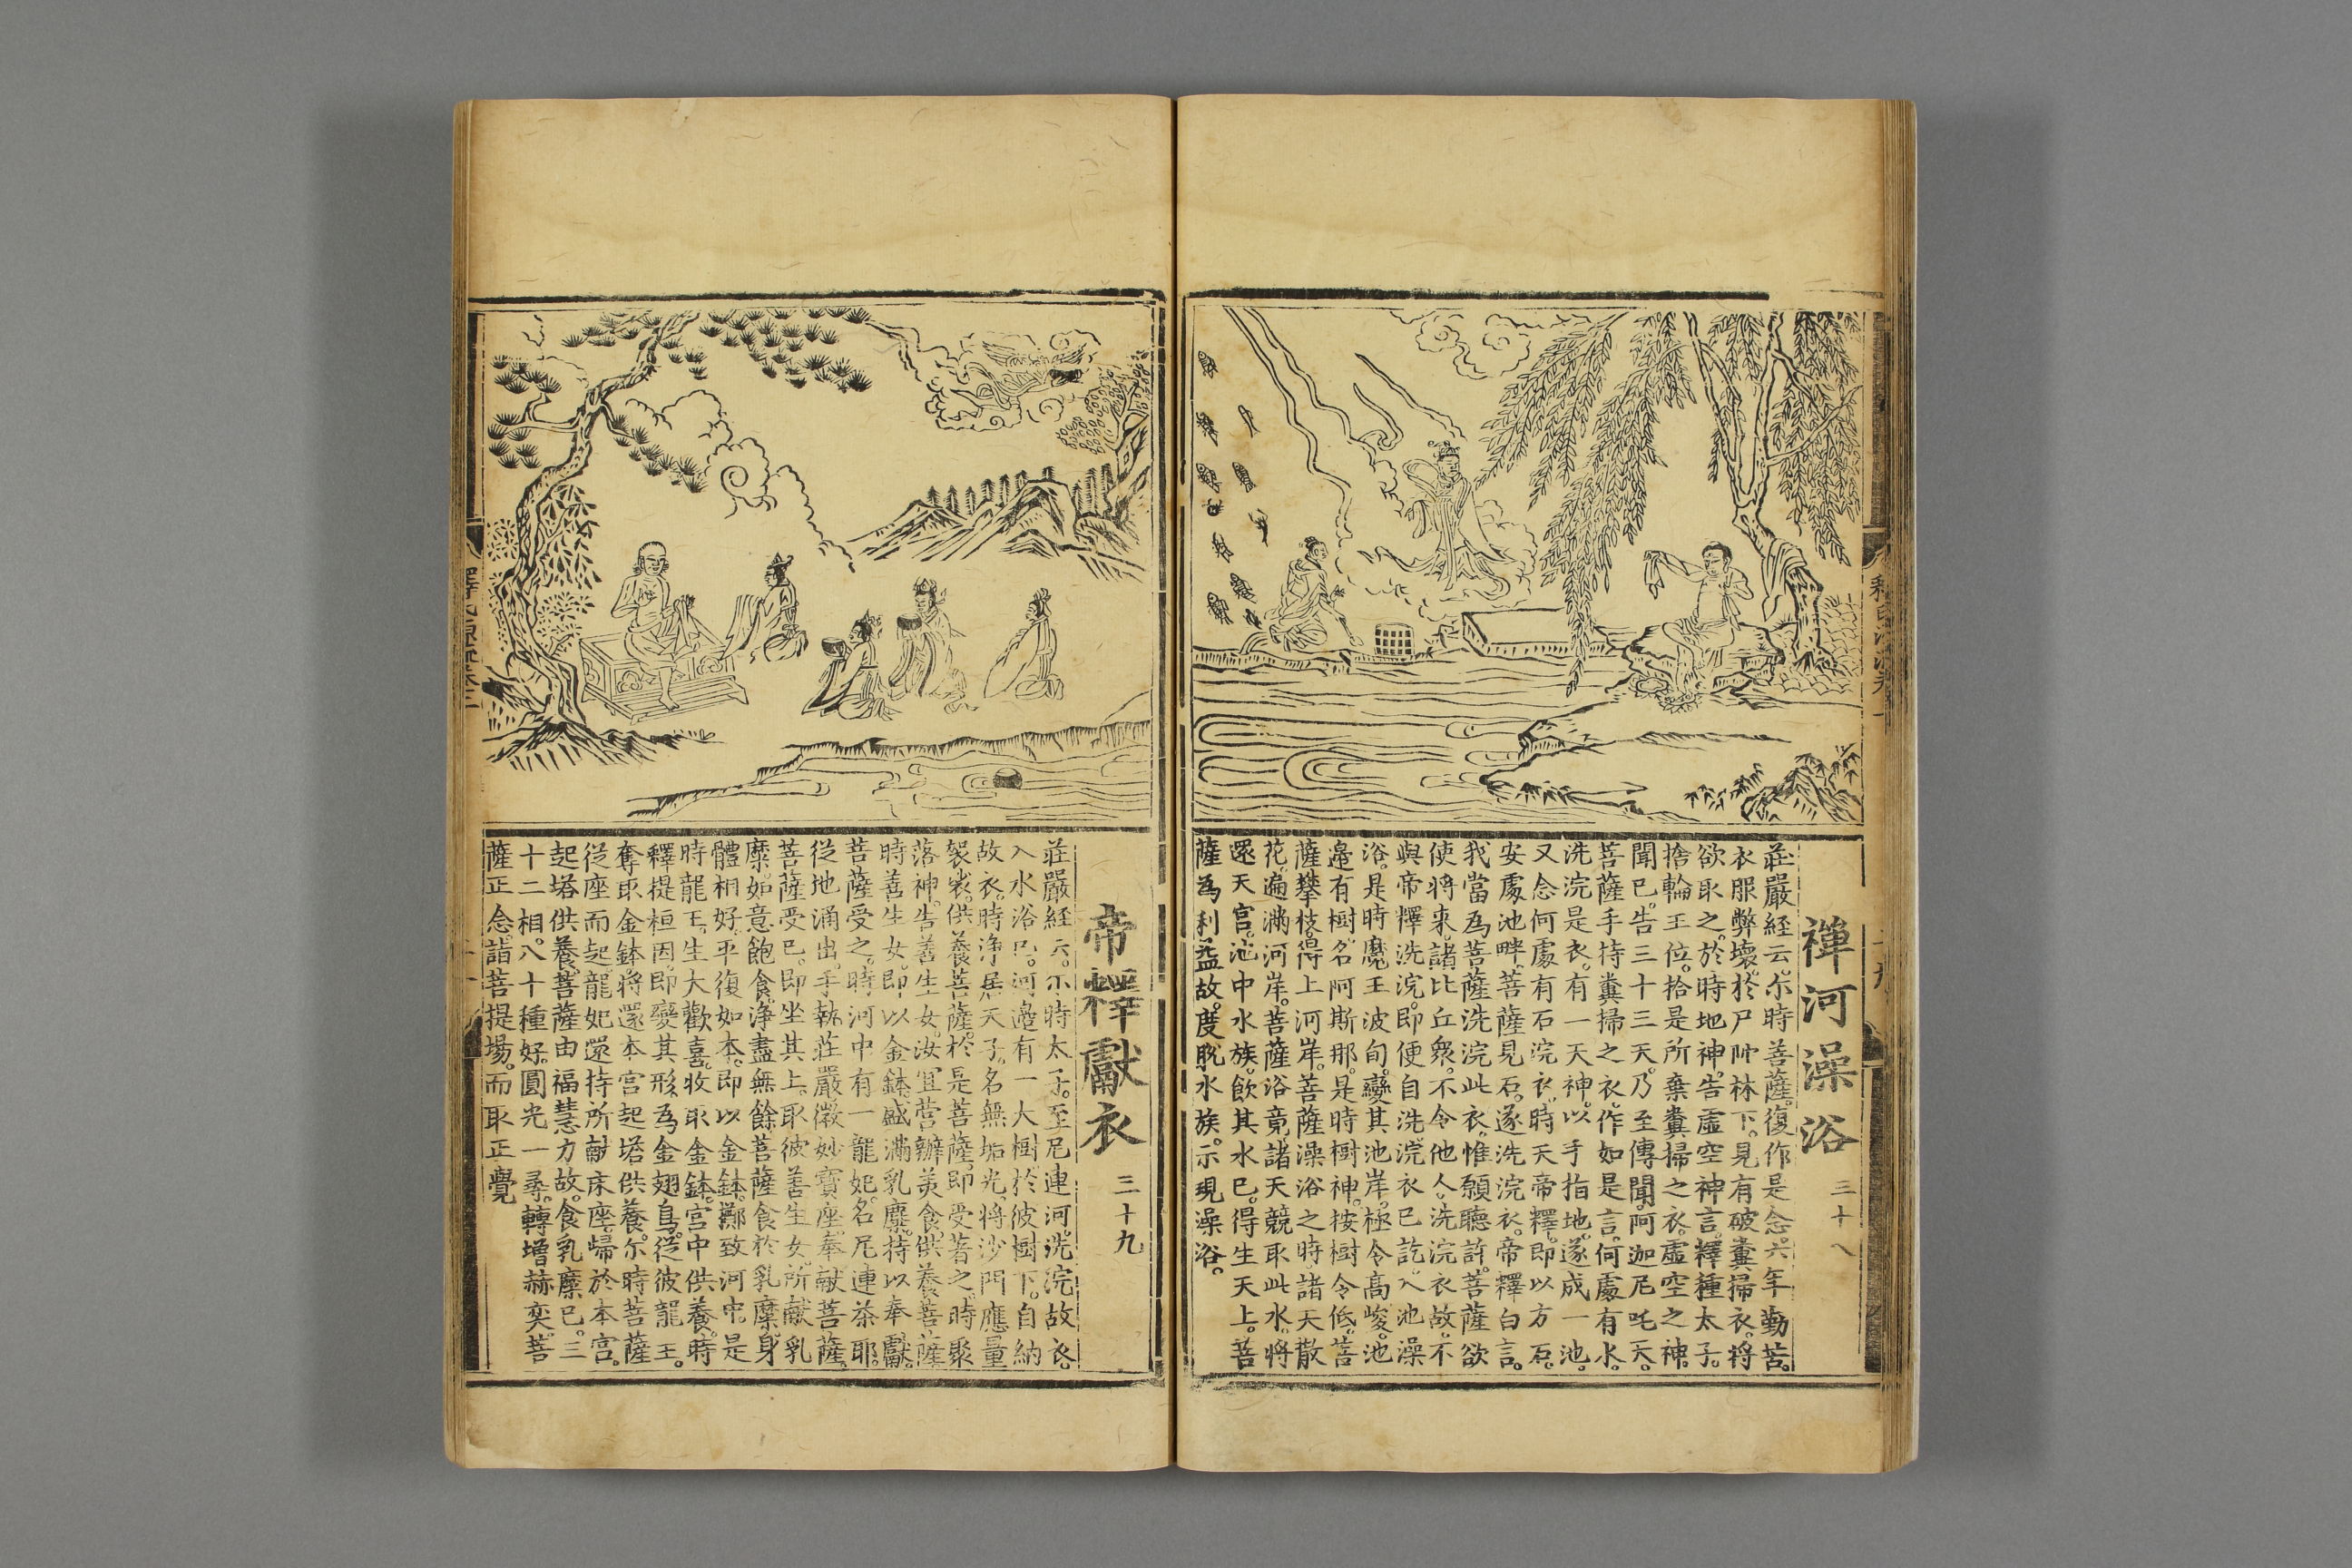 禪河澡浴 三十八
莊嚴経云尒時菩薩復作是念六年勤苦
衣服弊壞於尸陁林下見有破糞掃衣将
欲取之於時地神告虛空神言釋種太子
捨輪王位拾是所棄糞掃之衣虛空之神
聞已告三十三天乃至傳聞阿迦尼吒天
菩薩手持糞掃之衣作如是言何處有水
洗浣是衣有一天神以手指地遂成一池
又念何處有石浣衣時天帝釋即以方石
安處池畔菩薩見石遂洗浣衣帝釋白言
我當為菩薩洗浣此衣惟願聽許菩薩欲
使将來諸比丘衆不令他人洗浣衣故不
與帝釋洗浣即便自洗浣衣已訖入池澡
浴是時魔王波旬變其池岸極令高峻池
邉有樹名阿斯那是時樹神按樹令低菩
薩攀枝得上河岸菩薩澡浴之時諸天散
花遍滿河岸菩薩浴竟諸天競取此水将
還天宫池中水族飲其水已得生天上菩
薩為利益故度脫水族示現澡浴
帝釋獻衣 三十九
莊嚴経云尒時太子至尼連河洗浣故衣
入水浴已河邉有一大樹於彼樹下自納
故衣時淨居天子名無垢光将沙門應量
袈裟供養菩薩於是菩薩即受著之時聚
落神告善生女汝宜営辦美食供養菩薩
時善生女即以金鉢盛滿乳糜持以奉獻
菩薩受之時河中有一龍妃名尼連茶耶
從地涌出手執莊嚴微妙寶座奉献菩薩
菩薩受已即坐其上取彼善生女所献乳
糜如意飽食淨盡無餘菩薩食於乳糜身
體相好平復如本即以金鉢擲致河中是
時龍王生大歡喜收取金鉢宫中供養時
釋提桓因即變其形為金翅鳥從彼龍王
奪取金鉢将還本宫起塔供養尒時菩薩
從座而起龍妃還持所献床座歸於本宫
起塔供養菩薩由福慧力故食乳糜已三
十二相八十種好圓光一尋轉增赫奕菩
薩正念詣菩提場而取正覺